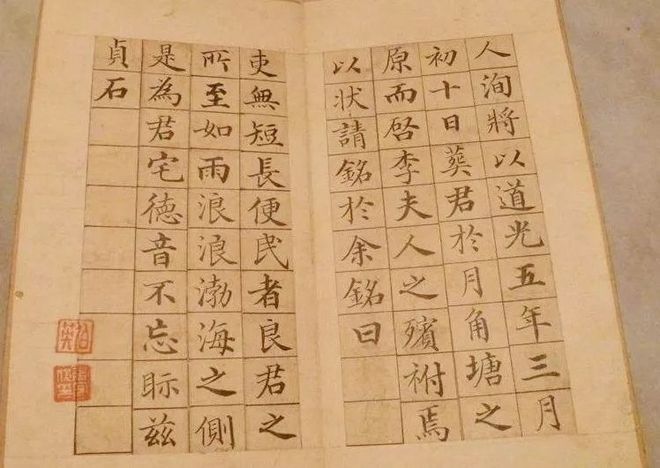 人洵將以道光五年三月
初十日葬君於月角塘之
原而啓李夫人之殯祔焉
以狀請銘於余銘曰
吏無短長便民者良君之
所至如雨浪浪渤海之側
是為君宅徳音不忘眎兹
貞石